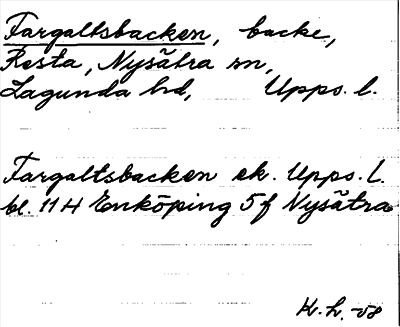 Fargaltsbacken, backe,
Resta, Nysätra sn,
Lagunda hd, Upps. l.
Fargaltsbacken ek. Upps. L.
bl. 11 H Enköping 5 f Nysätra
K. h. -58